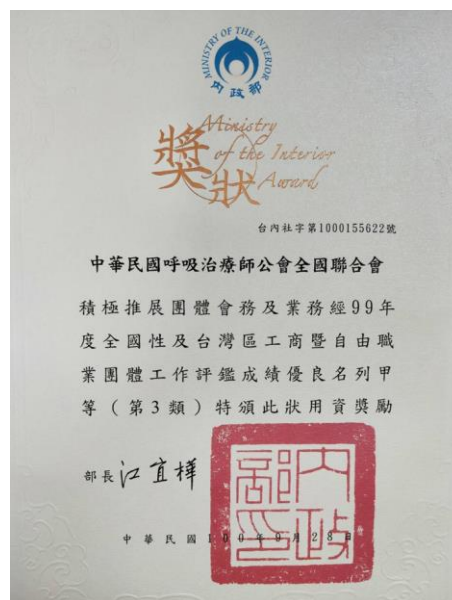 MINISTRY OF THE INTERIOR
內政部
獎狀
Ministry
of the Interior
Award
台內社字第1000155622號
中華民國呼吸治療師公會全國聯合會
積極推展團體會務及業務經99年
度全國性及台灣區工商暨自由職
業團體工作評鑑成績優良名列甲
等（第3類）特頒此狀用資獎勵
部長江宜樺
內政部印
中華民國100年9月28日